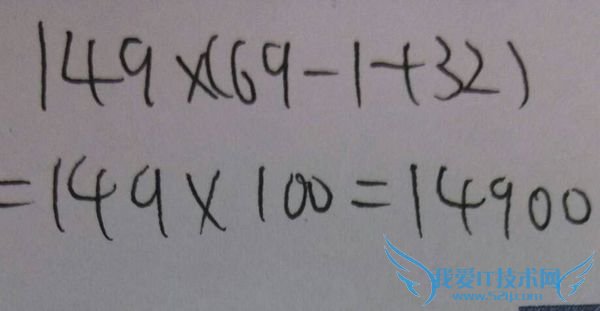 149×(69-1+32)
=149×100=14900
我爱IT技术网
www.52ij.com